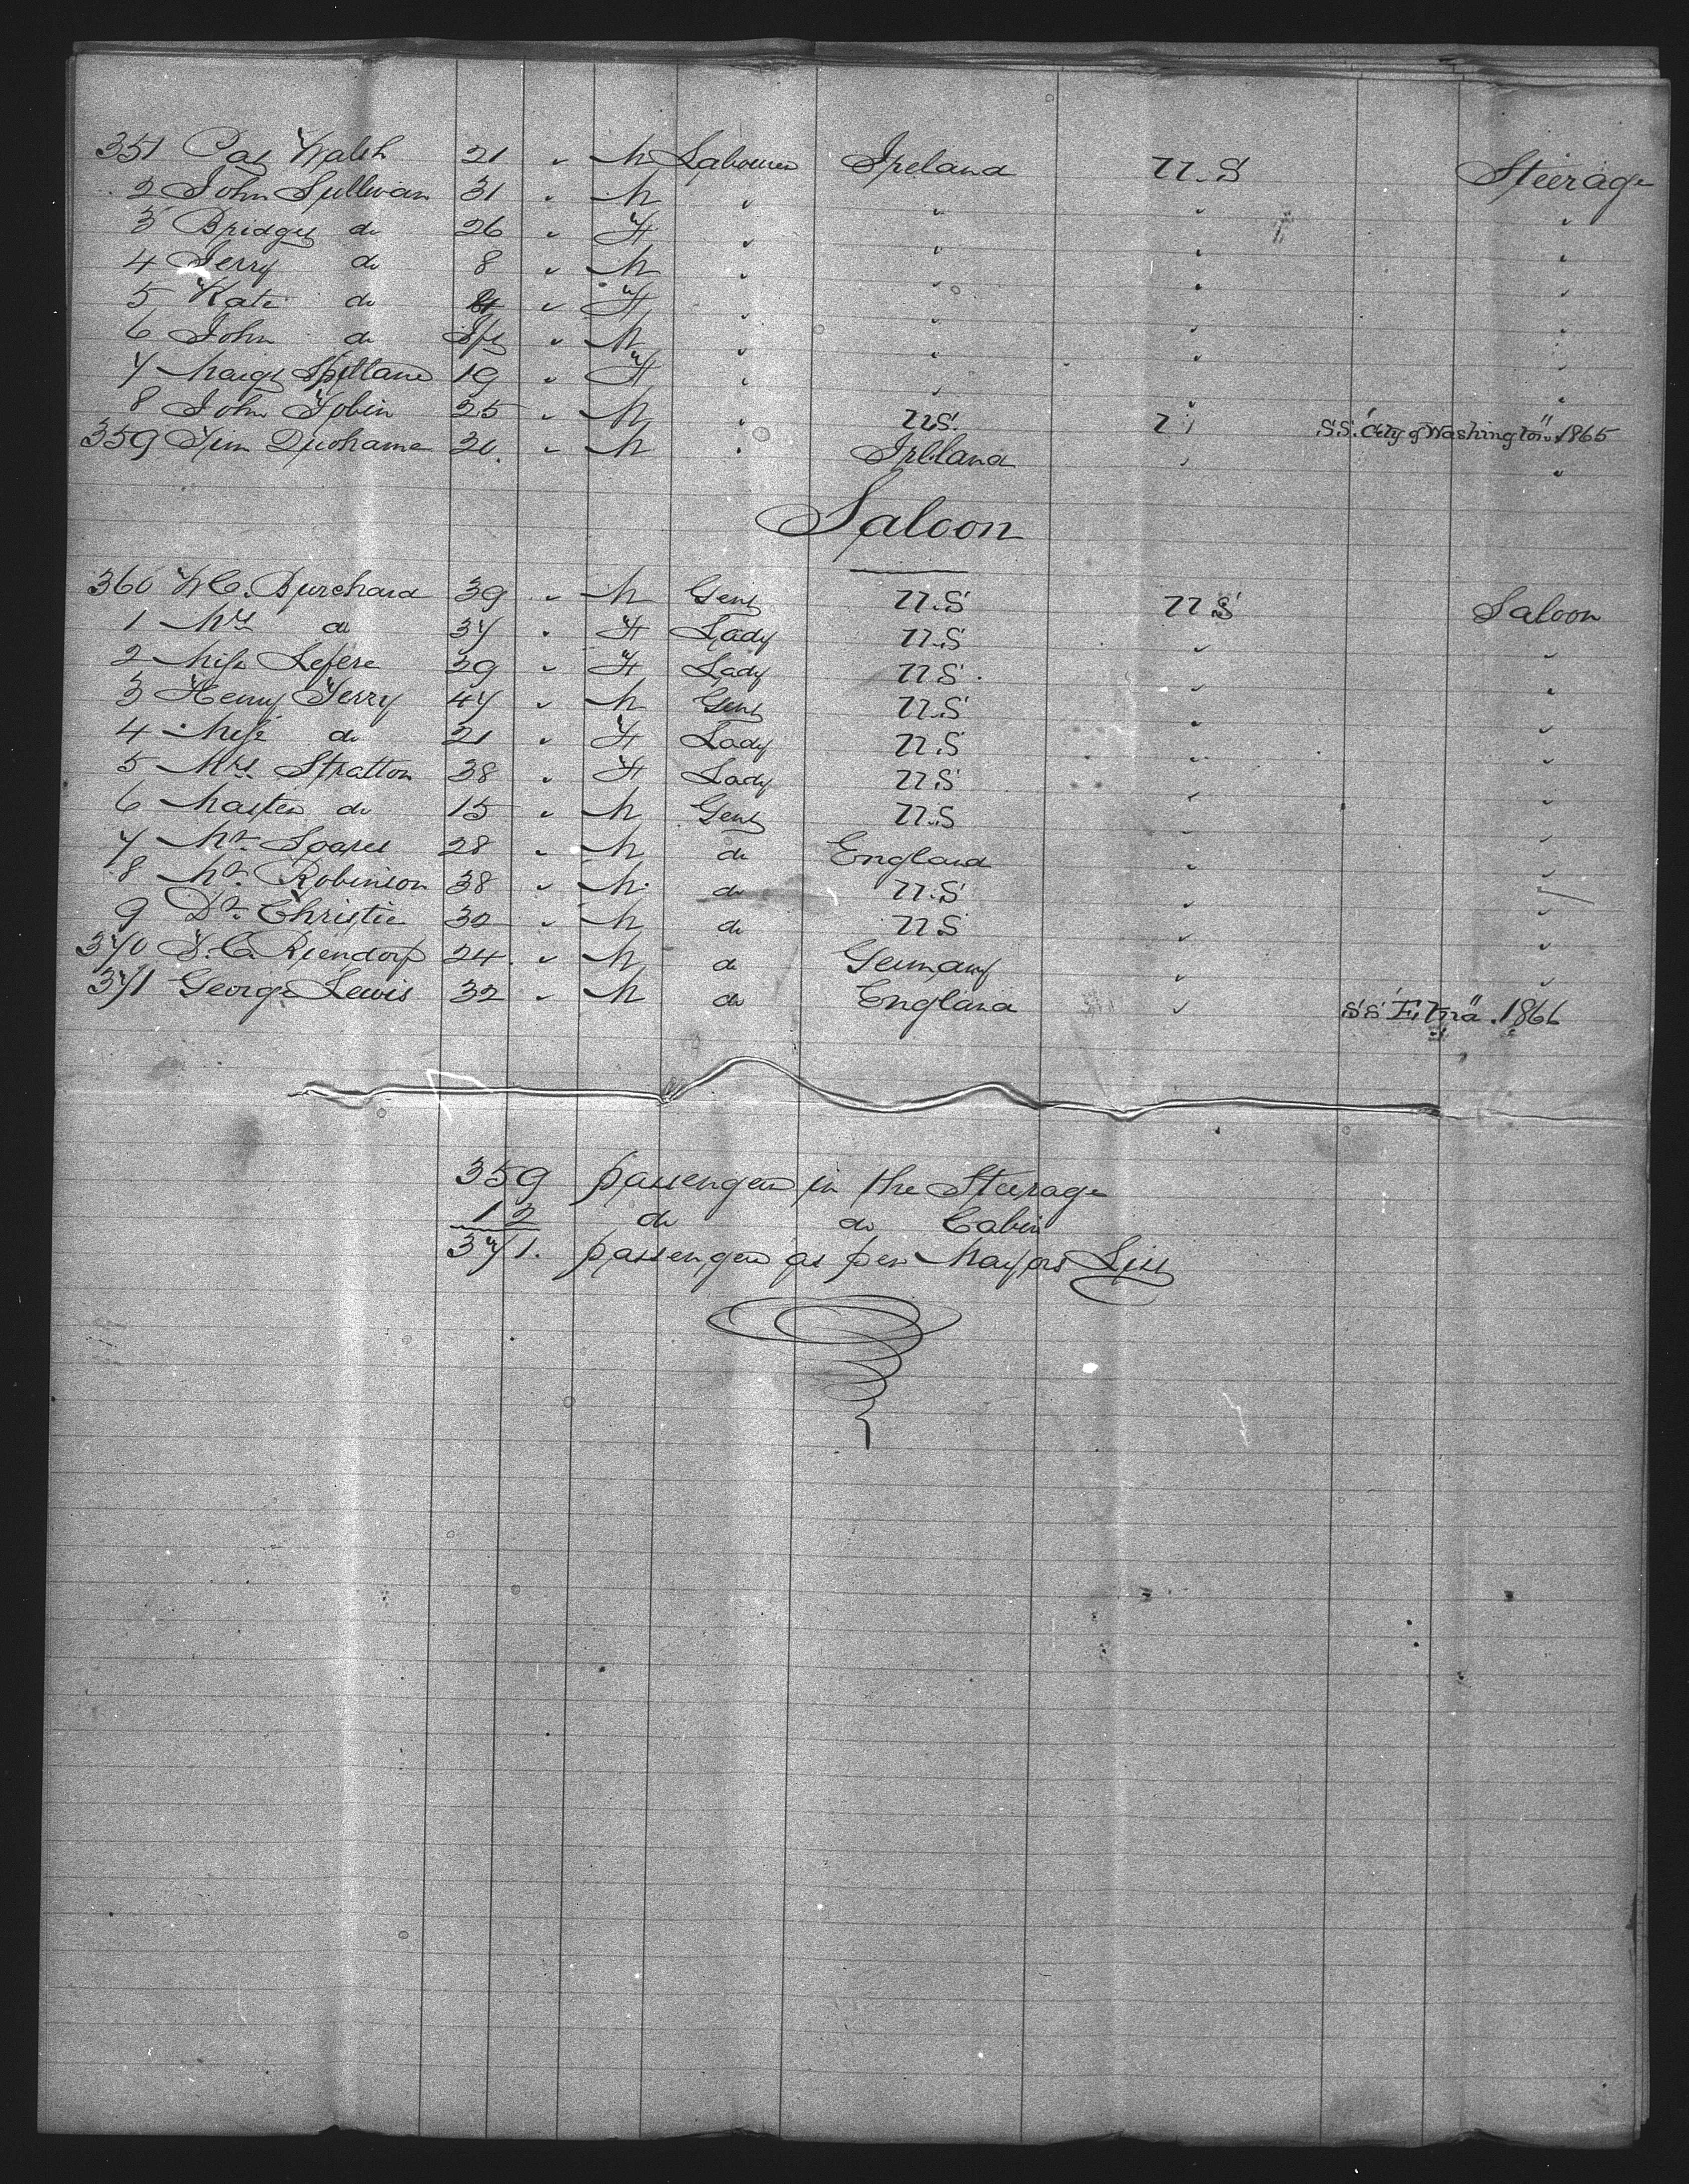 351 Pat Walsh 21 " M Labourer Ireland U.S Steerage
2 John Sullivan 31 " M " " " "
3 Bridget do 26 " F " " " "
4 Jerry do 8 " M " " " "
5 Kate do 4 " F " " " "
6 John do Inft " M " " " "
7 Margt Spillane 19 " F " " " "
8 John Tobin 25 " M " U.S. " S.S. "City of Washington" 1865
359 Tim 30. " M " Ireland " "
Saloon
360 W C. Burchard 39 " M Gent U.S U.S Saloon
1 Mrs do 37 " F Lady U.S " "
2 Miss Lefere 29 " F Lady U.S. " "
3 Henry Terry 47 " M Gent U.S " "
4 Miss do 21 " F Lady U.S " "
5 Mrs Stratton 38 " F Lady U.S " "
6 Master do 15 " M Gent U.S " "
7 Mr. Soares 28 " M do England " "
8 Mr. Robinson 38 " M. do U.S " "
9 Dr. Christie 32 " M do U.S " "
370 Riendorf 24. " M do Germany "
371 George Lewis 32 " M do England " S.S "Etna". 1866
"
359 passengers in the Steerage
12 do do Cabin
371. passengers as per Mayors List